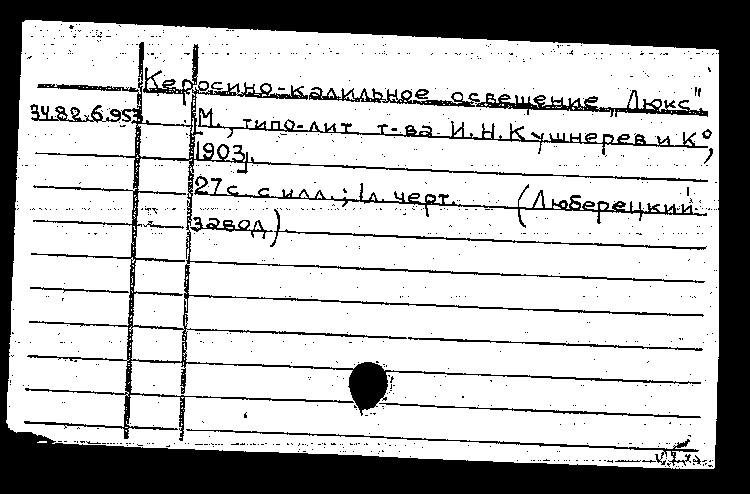 Керосино-калильное освещение „Люкс".
34.82.6.953. [М., типо-лит т-ва И.Н.Кушнерев и К°,
1903].
27с. с илл.; 1л. черт. (Люберецкий
завод).